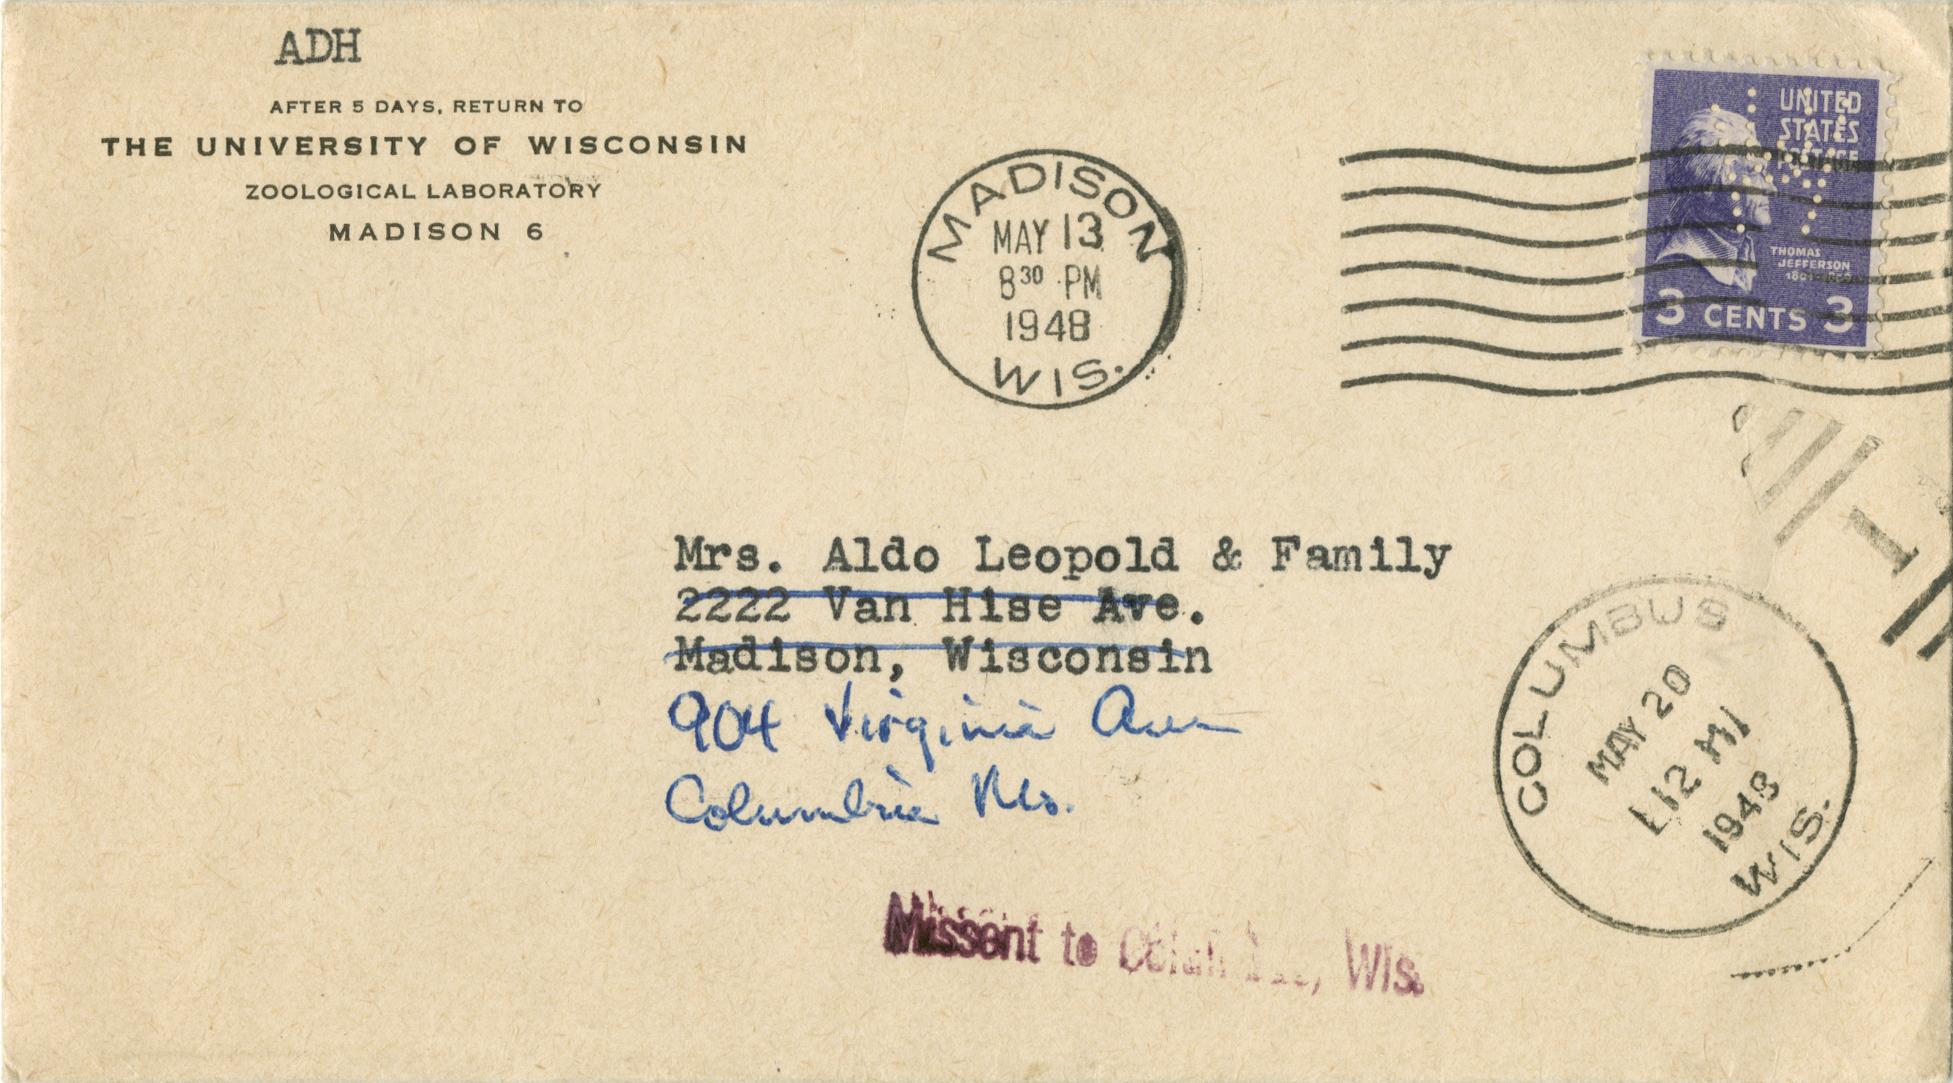 ADH
AFTER 5 DAYS, RETURN TO
THE UNIVERSITY OF WISCONSIN
ZOOLOGICAL LABORATORY
MADISON 6
MADISON
MAY 13
8 30 PM
1948
WIS.
UNITED
STATES
POSTAGE
THOMAS
JEFFERSON
3 CENTS 3
Mrs. Aldo Leopold & Family
2222 Van Hise Ave.
Madison, Wisconsin
904 Virginia Ave
Columbia Mo.
1
COLUMBUS
MAY 20
1948
WIS.
Missent to Wis.